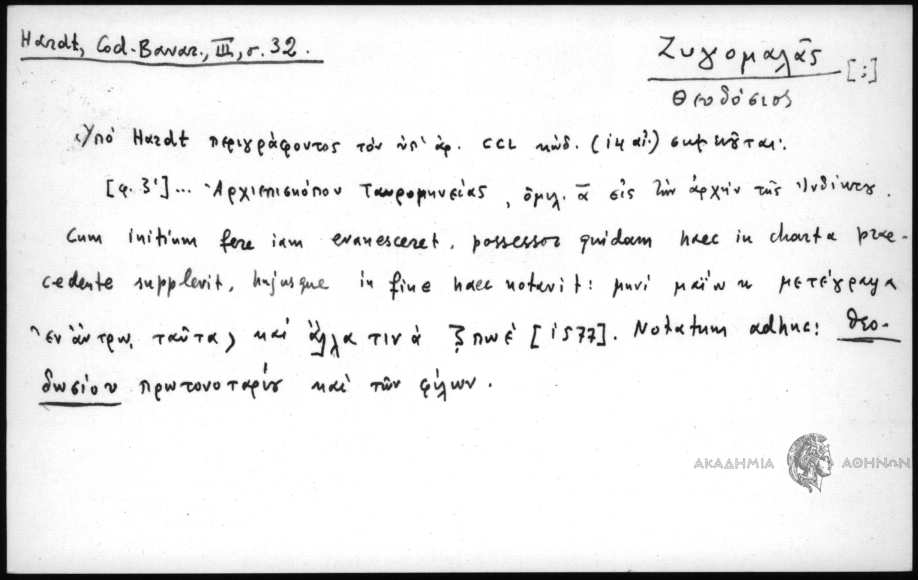 Hardt, Cod. Bavar., III, σ. 32.
Ζυγομαλᾶς [;]
Θεοδόσιος
Ὑπό Hardt περιγράφοντος τόν ὑπ' ἀρ. CCL κώδ. (ιη αἰ.) σημειοῦται:
[φ. 3'] ... Ἀρχιεπισκόπου Ταυρομηνείας, ὁμιλ. ᾱ εἰς τὴν ἀρχὴν τῆς Ἰνδίκτου.
Cum initium fere iam evanesceret, possessor quidam haec in charta prae-
cedente supplevit, hujusque in fine haec notavit: μηνί μαΐω κ μετέγραψα
ἐν ἄντρω, ταῦτα, καί ἄλλα τινά ζπωέ [1577]. Notatum adhuc: Θεο-
δωσίου πρωτονοταρίου καί τῶν φίλων.
ΑΚΑΔΗΜΙΑ ΑΘΗΝΩΝ